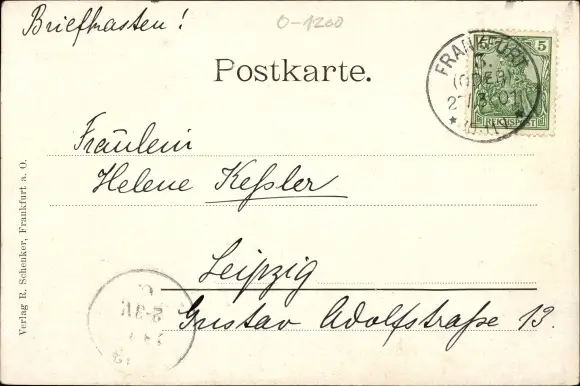 Briefkasten!
0-1200
Postkarte.
FRANKFURT
(ODER)
5
REICHSPOST
Fräulein
Helene Keßler
Leipzig
Gustav Adolfstraße 13.
Verlag R. Schenker, Frankfurt a. O.